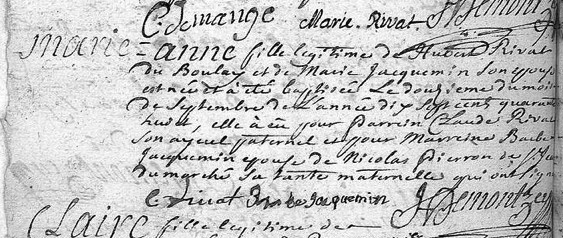 C. demange Marie. Rivat JN Demontzey
marie-anne fille legitime de Hubert Rivat
du Boulay et de Marie Jacquemin Son epouse
est née et a été baptisée Le douzieme du mois
de Septembre de L'année dix sept cent quarante
huit, elle a eu pour parrein Claude Rivat
Son ayeul paternel et pour Marreine Barbe
Jacquemin epouse de Nicolas Pierron de St
du marché Sa tante maternelle qui ont signé
C rivat Barbe Jacquemin JN Demontzey
Claire fille legitime de